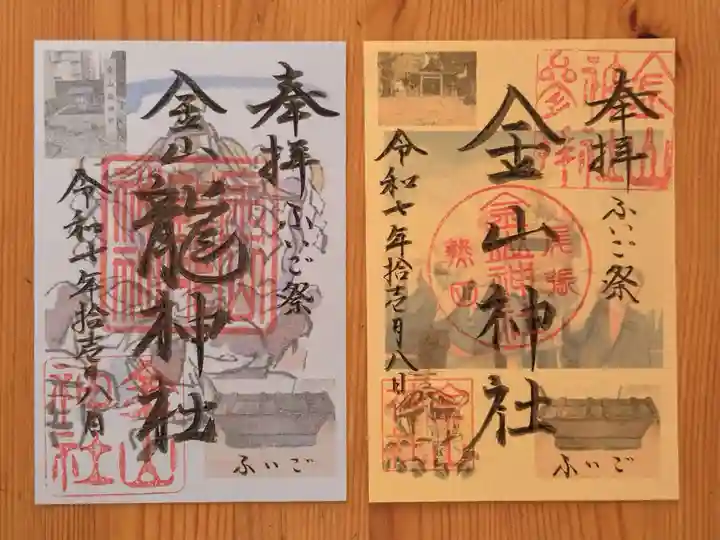 奉拝
ふいご祭
金山龍神社
令和七年拾壱月八日
ふいご
奉拝
ふいご祭
金山神社
令和七年拾壱月八日
尾張
金山神社
熱田
金山
神社
参拝
ふいご